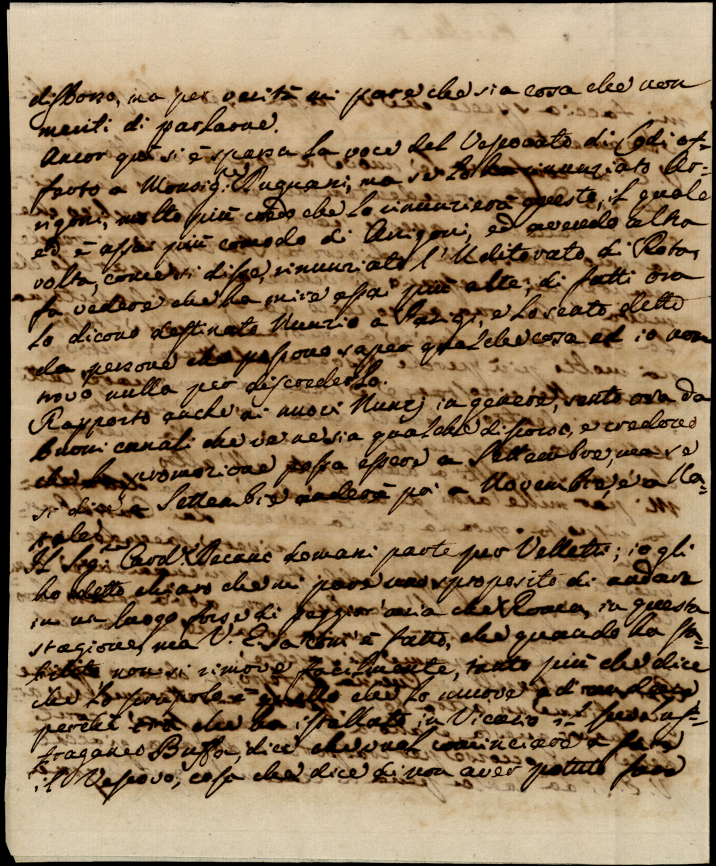 discorso, ma per verità mi pare che sia cosa che non
meriti di parlarne.
Ancor quì si è sparsa la voce del Vescovato di Lodi of-
ferto a Monsig.re Rugnani, ma se lo ha rinunziato Ar-
rigoni, molto più credo che lo rinunzierà questo, il quale
ed è assai più comodo di Arrigoni, ed avendo altra
volta, come si disse, rinunziato l'Uditorato di Rota,
fa vedere che ha mire assai più alte; di fatti ora
lo dicono destinato Nunzio a Parigi, e lo sento detto
da persone che possono saper qualche cosa ed io non
trovo nulla per discrederlo.
Rapporto anche ai nuovi Nunzj in genere, sento ora da
buoni canali che ve ne sia qualche discorso, e crederei
che la promozione possa essere a Settembre, ma se
si dice a Settembre anderà poi a Novembre, e a Na-
tale.
Il Sig.r Card.l Decano domani parte per Velletri; io gli
ho detto chiaro che mi pare uno sproposito di andare
in un luogo forse di peggior aria che Roma, in questa
stagione, ma V. E. sa com'è fatto, che quando ha sta-
bilito non si rimove facilmente, tanto più che dice
che lo scrupolo è quello che lo muove ad andare
perchè ora che ha istallato in Vicario il suo suf-
fraganeo Bussi, dice che vuol cominciare a fare
il Vescovo, cosa che dice di non aver potuto fare